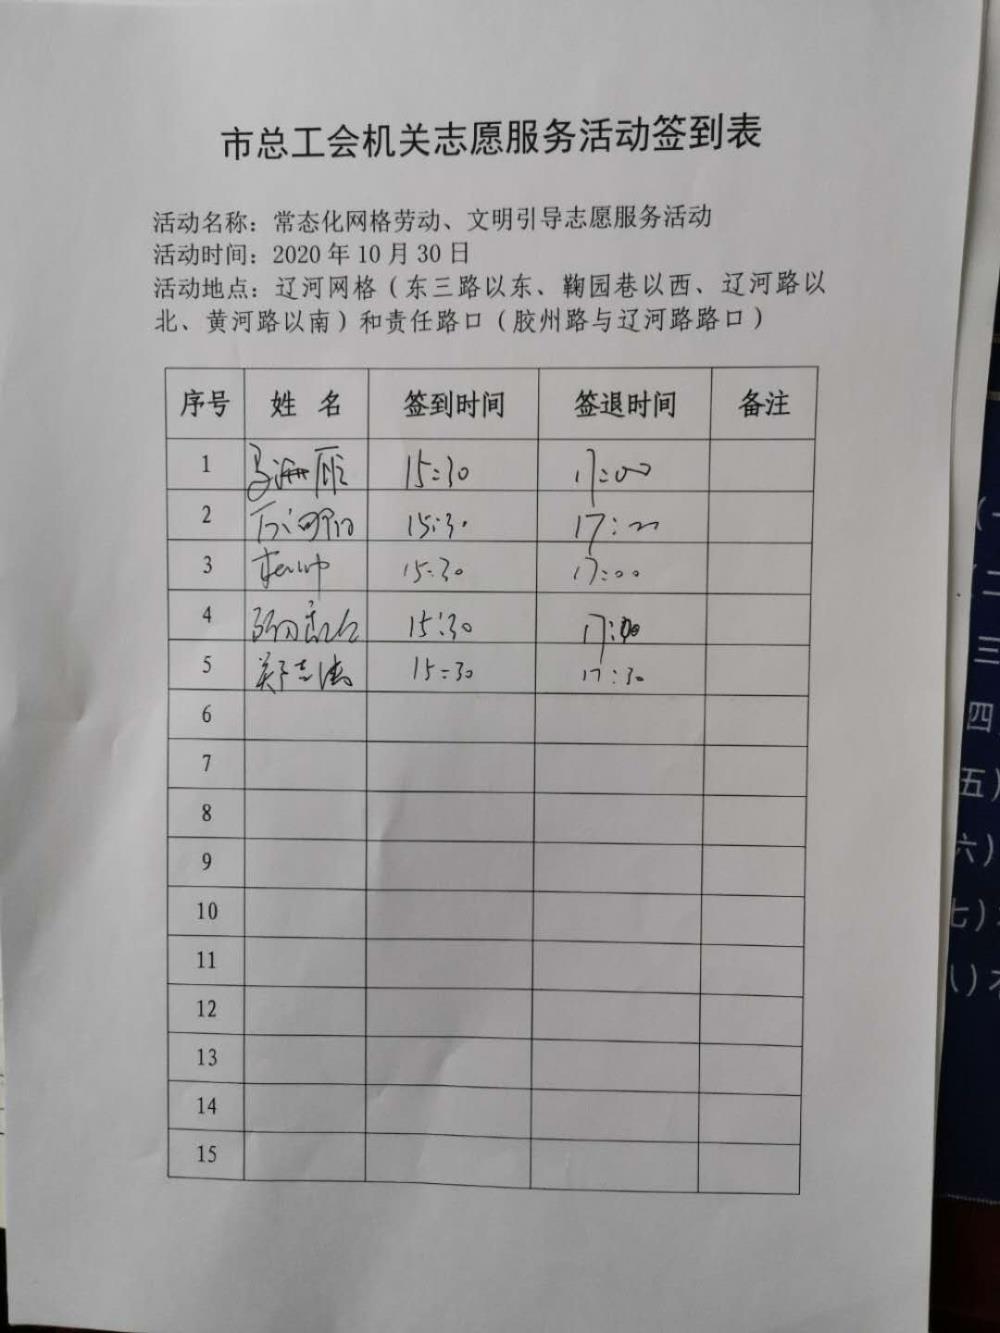 市总工会机关志愿服务活动签到表
活动名称：常态化网格劳动、文明引导志愿服务活动
活动时间：2020年10月30日
活动地点：辽河网格（东三路以东、鞠园巷以西、辽河路以
北、黄河路以南）和责任路口（胶州路与辽河路路口）
序号 姓 名 签到时间 签退时间 备注
1 15:30 17:00
2 15:30 17:00
3 15:30 17:00
4 15:30 17:00
5 郑志涛 15:30 17:30
6
7
8
9
10
11
12
13
14
15
三
四
五）
六）
七）